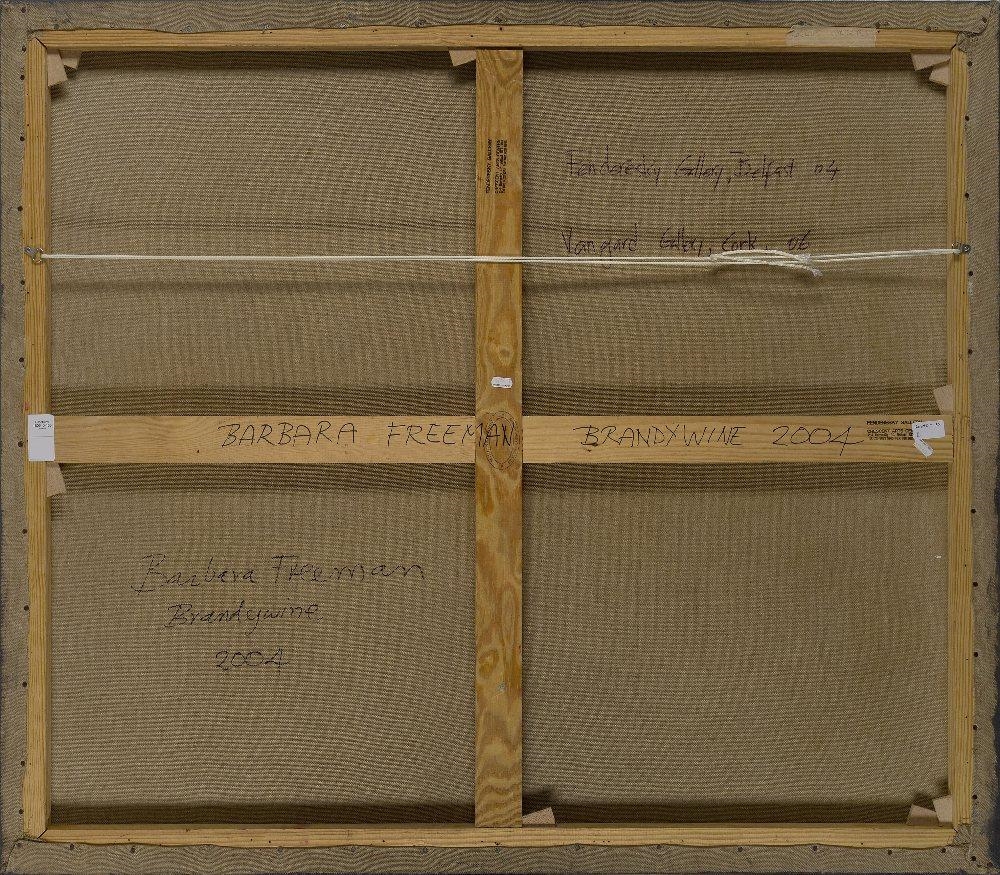 Fenderesky Gallery, Belfast 04
Vangard Gallery, Cork. 06
BARBARA FREEMAN BRANDYWINE 2004
FENDERESKY GALLERY
Barbara Freeman
Brandywine
2004